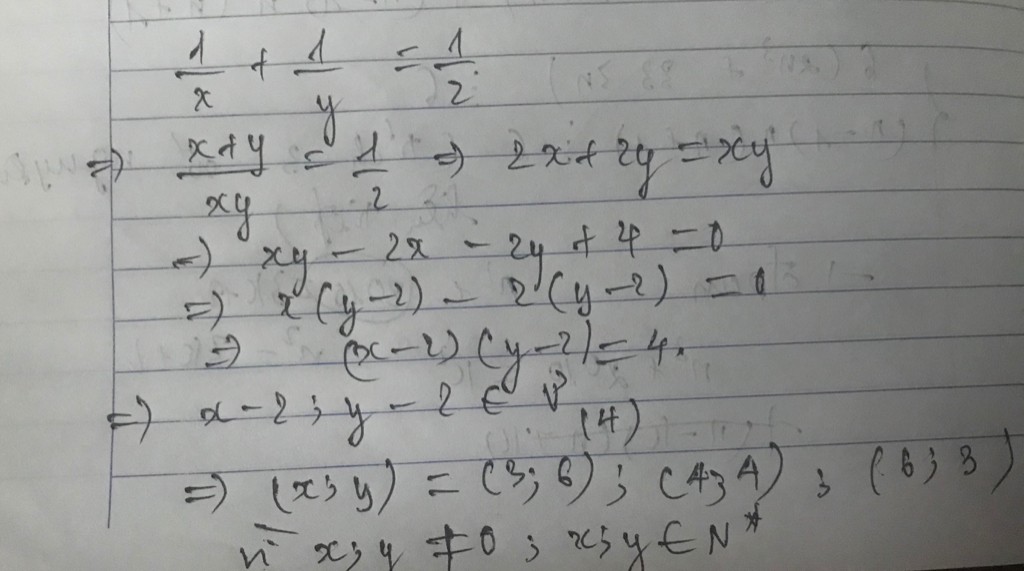 1/x + 1/y = 1/2
=) x+y/xy = 1/2 =) 2x+2y = xy
=) xy - 2x - 2y + 4 = 0
=) x(y-2) - 2(y-2) = 0
=) (x-2)(y-2) = 4.
=) x-2; y-2 ∈ Ư(4)
=) (x; y) = (3; 6); (4; 4); (6; 3)
vì x; y ≠ 0; x; y ∈ N*